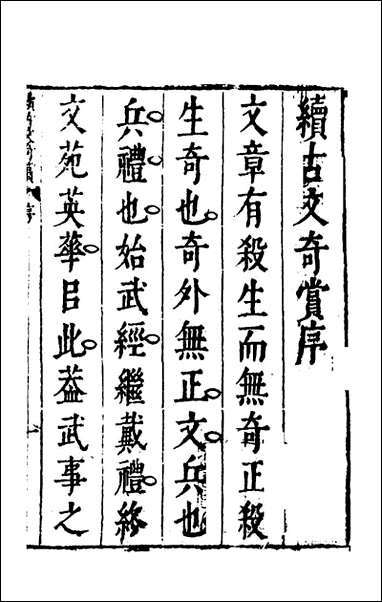 續古文奇賞序
文章有殺生而無奇正殺
生奇也奇外無正文兵也
兵禮也始武經繼戴禮終
文苑英華㠯此葢武事之